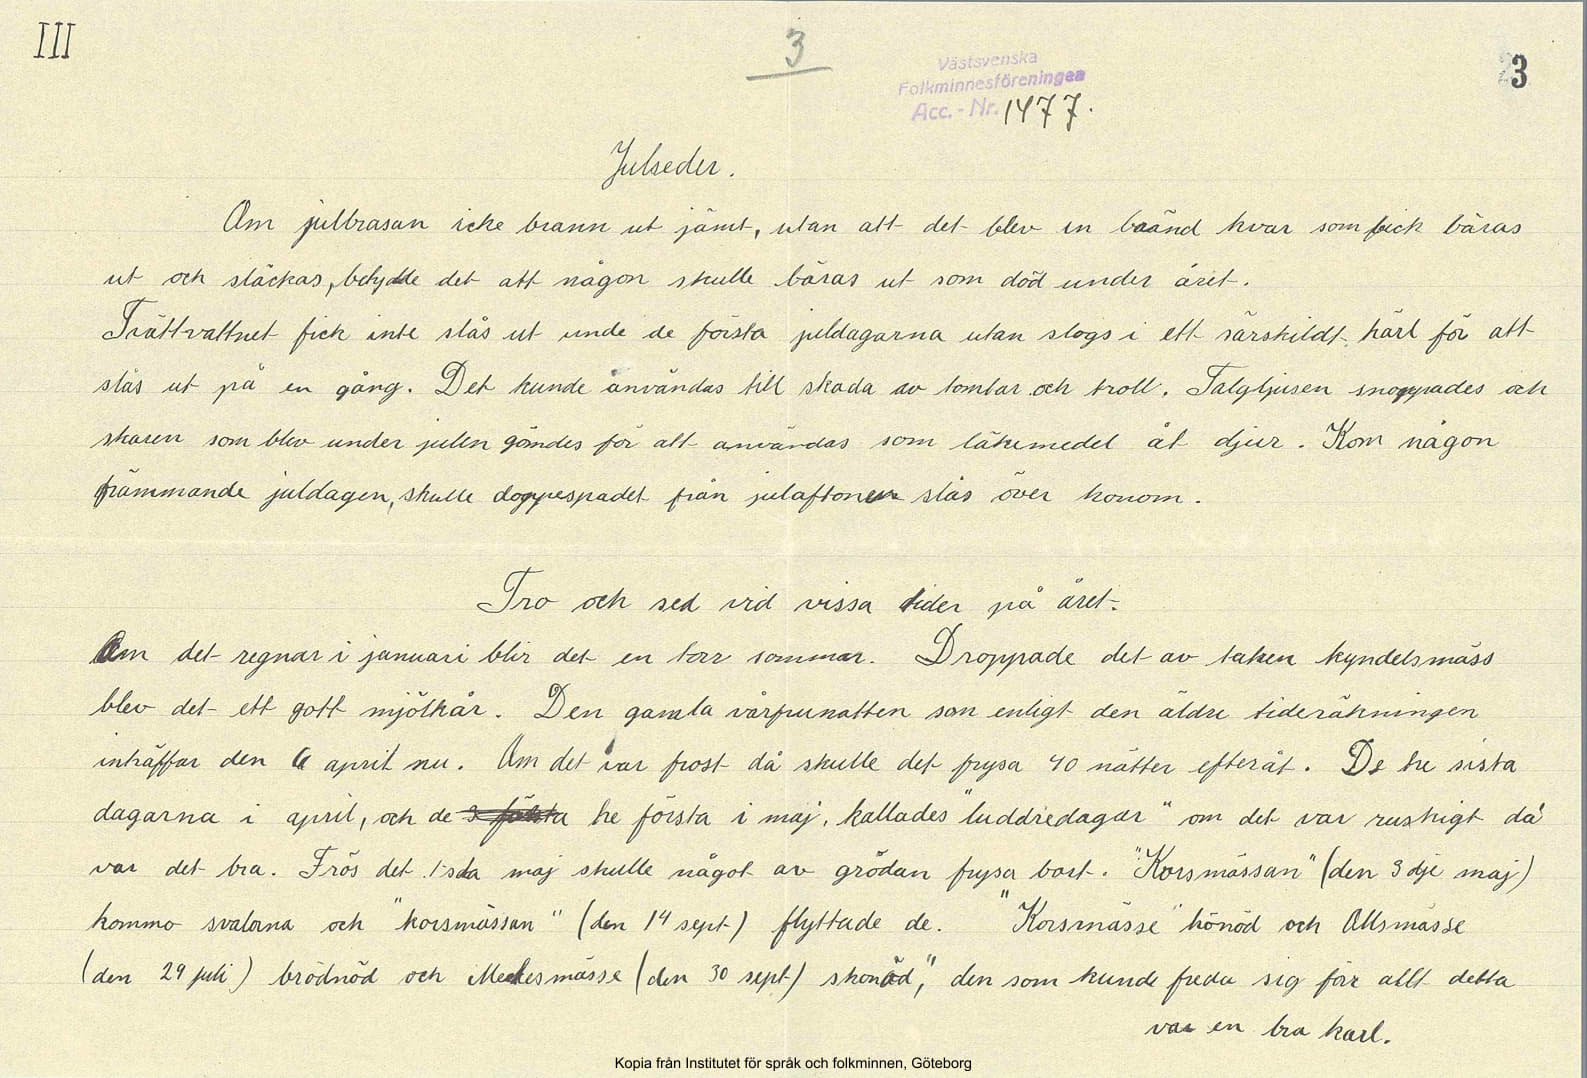 III
3
Västsvenska
Folkminnesföreningen
Acc. - Nr. 1477.
3
Julseder.
Om julbrasan icke brann ut jämt, utan att det blev en brand kvar som fick bäras
ut och släckas, betydde det att någon skulle bäras ut som död under året.
Tvättvattnet fick inte slås ut unde de första juldagarna utan slogs i ett särskildt kärl för att
slås ut på en gång. Det kunde användas till skada av tomtar och troll. Talgljusen snoppades och
skaren som blev under julen gömdes för att användas som läkemedel åt djur. Kom någon
främmande juldagen, skulle doppespadet från julaftonen slås över honom.
Tro och sed vid vissa tider på året.
Om det regnar i januari blir det en torr sommar. Droppade det av taken kyndelsmäss
blev det ett gott mjölkår. Den gamla vårfrunatten som enligt den äldre tideräkningen
inträffar den 6 april nu. Om det var frost då skulle det frysa 40 nätter efteråt. De tre sista
dagarna i april, och de tre första i maj, kallades "luddredagar" om det var ruskigt då
var det bra. Frös det 1sta maj skulle något av grödan frysa bort. "Korsmässan" (den 3dje maj)
kommo svalorna och "korsmässan" (den 14 sept) flyttade de. "Korsmässe hönöd och Olsmässe
(den 29 juli) brödnöd och Meckesmässe (den 30 sept) skonöd", den som kunde freda sig för allt detta
var en bra karl.
Kopia från Institutet för språk och folkminnen, Göteborg